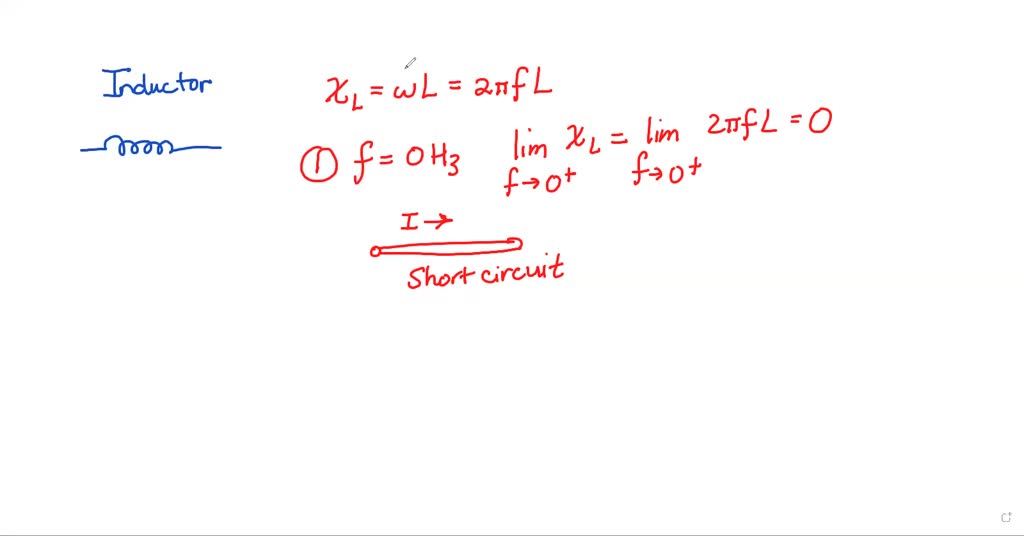 Inductor
X_L = ωL = 2πfL
① f = 0 Hz lim_{f→0⁺} X_L = lim_{f→0⁺} 2πfL = 0
I →
Short circuit